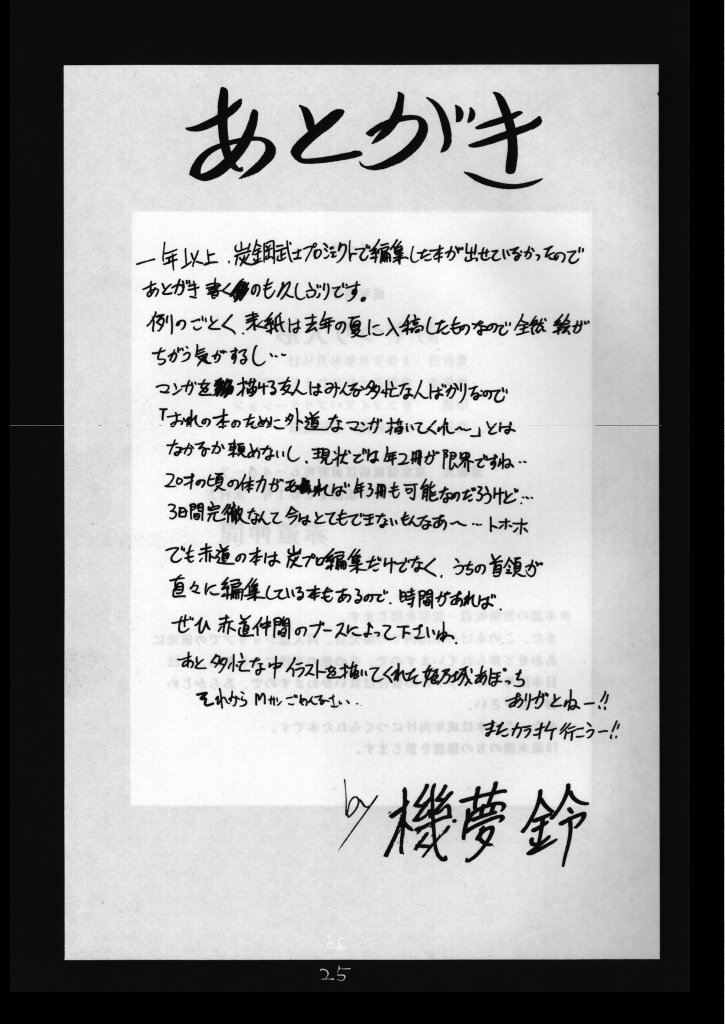 あとがき
一年以上、炭鋼武士プロジェクトで編集した本が出せていなかったので
あとがき書くのも久しぶりです。
例のごとく、表紙は去年の夏に入稿したものなので全然絵が
ちがう気がするし…
マンガを描ける友人はみんな多忙な人ばかりなので
「おれの本のために外道なマンガ描いてくれ〜」とは
なかなか頼めないし、現状では年2冊が限界ですね…
20才の頃の体力があれば年3冊も可能なのだろうけど…
3日間完徹なんて今はとてもできないもんなあ〜…トホホ
でも赤道の本は炭プロ編集だけでなく、うちの首領が
直々に編集している本もあるので、時間があれば、
ぜひ赤道仲間のブースによって下さいね。
あと多忙な中イラストを描いてくれた姫乃城あぽっろ
ありがとねー!!
それからMカンごめんなさい.
またカラオケ行こうー!!
by 機夢鈴
25